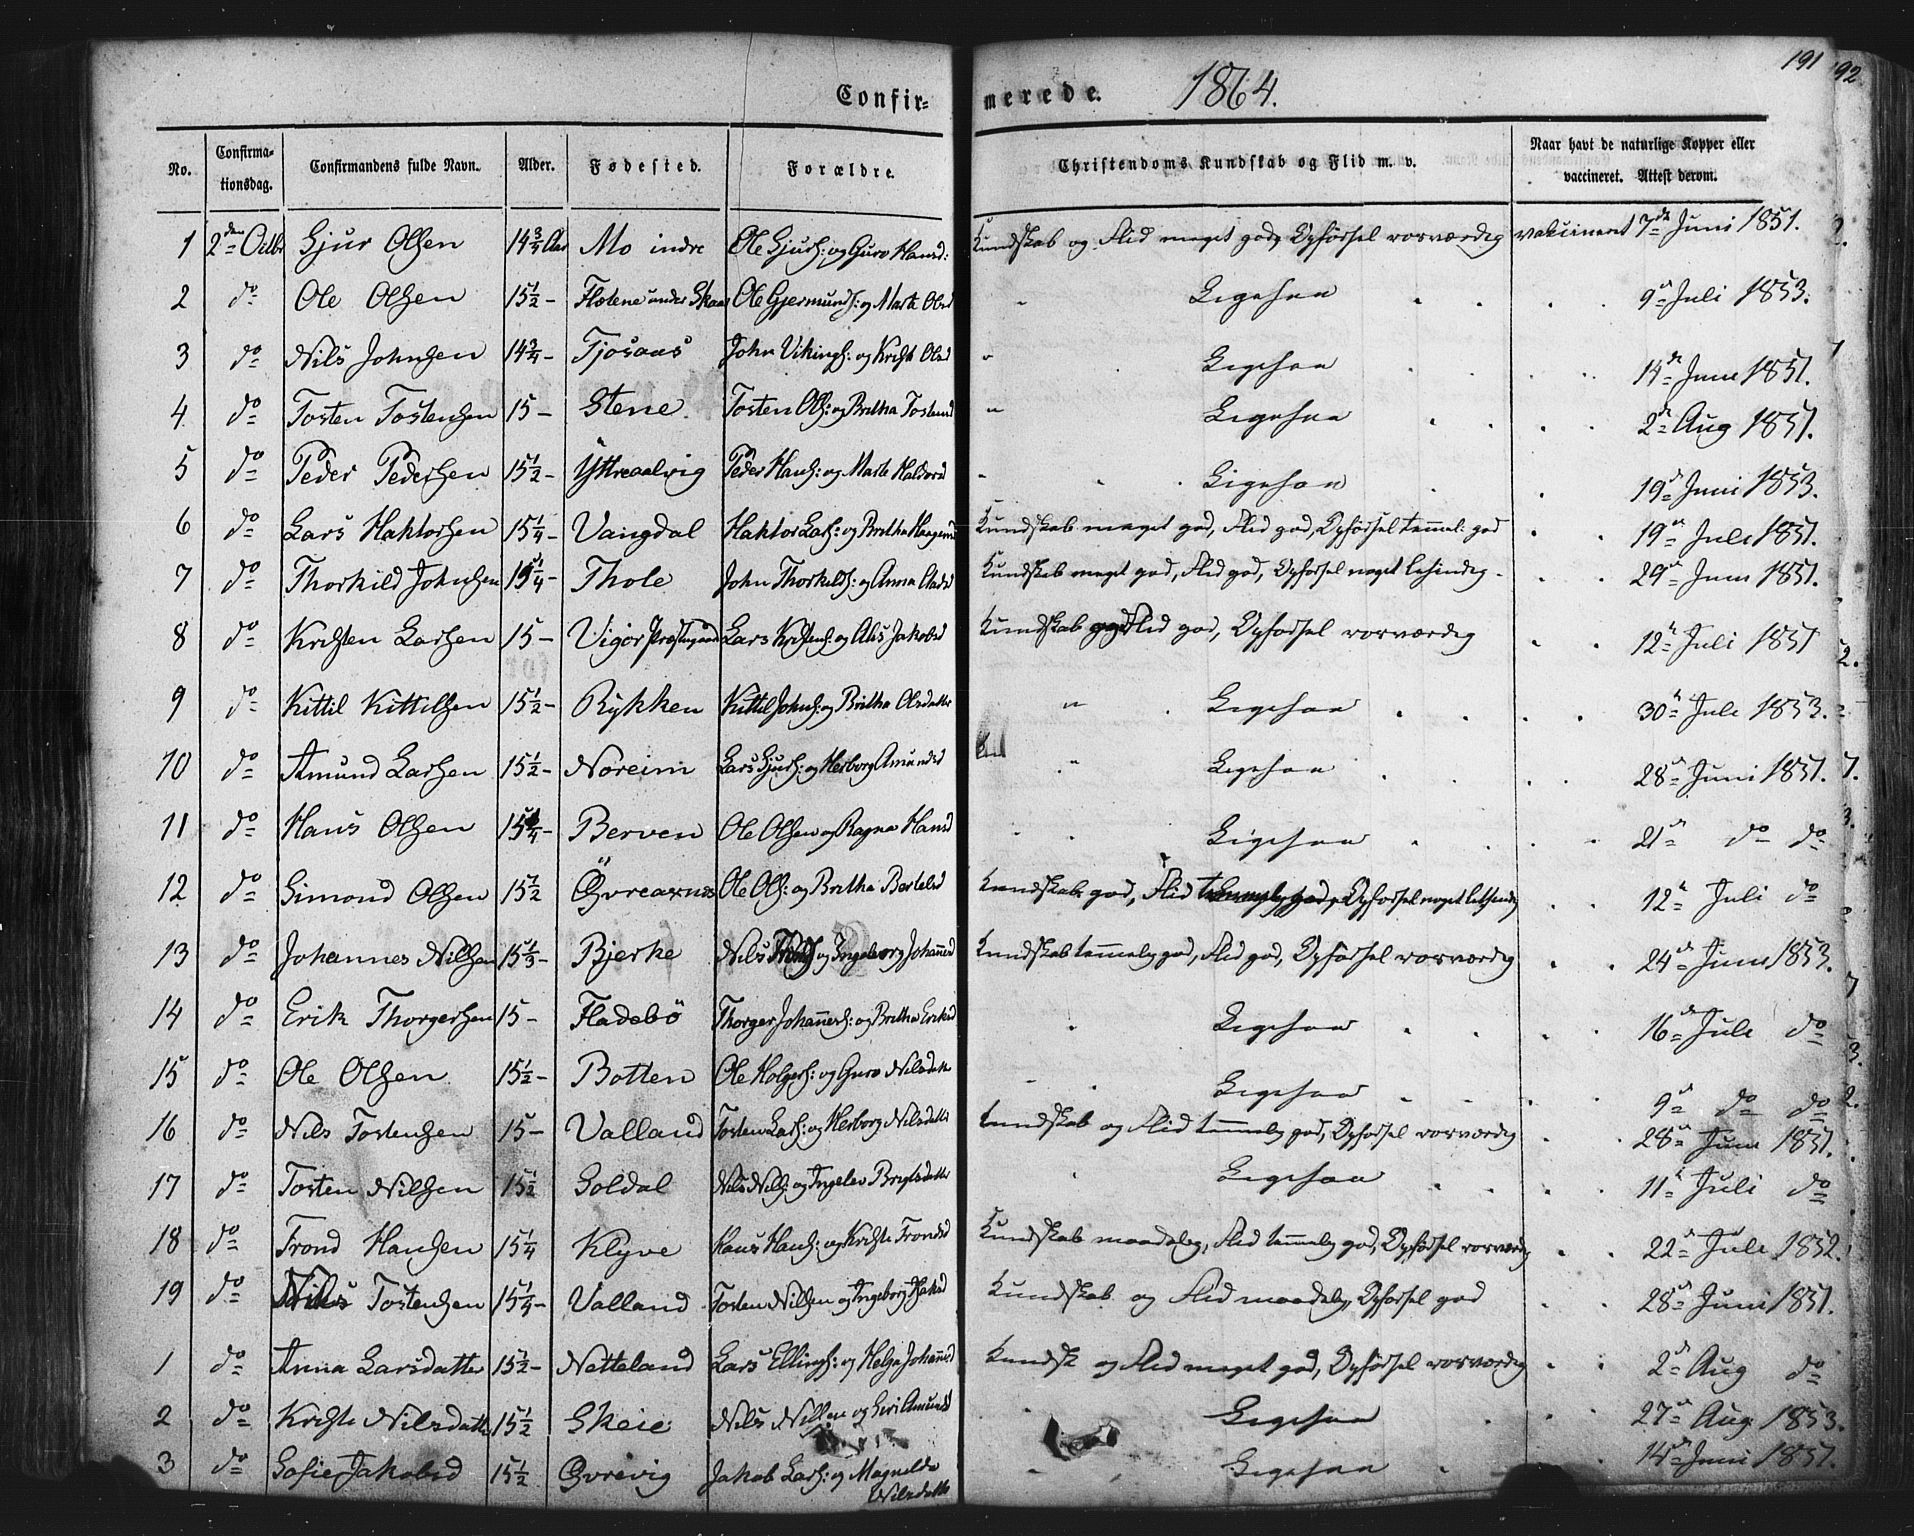 191
92
Confir- merede. 1864.
No. Confirma-tionsdag. Confirmandens fulde Navn. Alder. Fødested. Forældre. Christendoms Kundskab og Flid m. v. Naar havt de naturlige Kopper eller vaccineret. Attest derom.
1 2den Octbr Gjur Olsen 14 3/4 Aar Mo indre Ole Gjurs: og Guro Hansd: Kundskab og Flid meget god, Opførsel rosværdig vakcineret 7de Juni 1851.
2 do Ole Olsen 15 1/2 - under Skaar Ole Gjermunds: og Marte Olsd Ligesaa 9de Juli 1853.
3 do Nils Johnsen 14 3/4 - Tjosaas John Vikings: og Krist Olsd Ligesaa 14de Juni 1851.
4 do Tosten Tostensen 15 - Stene Tosten Ols: og Britha Tostensd Ligesaa 2de Aug 1851.
5 do Peder Pedersen 15 1/2 - Yttreaalvig Peder Hans: og Marte Haldord Ligesaa 19de Juni 1853.
6 do Lars Haktorsen 15 1/4 - Vangdal Haktor Lars: og Britha Kundskab meget god, Flid god, Opførsel temmel: god 19de Juli 1851.
7 do Thorkild Johnsen 15 1/4 - Thole John Thorkilds: og Anna Kundskab meget god, Flid god, Opførsel noget letsindig 29de Juni 1851.
8 do Kristen Larsen 15 - Vigør Præstegaard Lars Kristens: og Alis Jakobsd Kundskab og Flid god, Opførsel rosværdig 12te Juli 1851
9 do Kittil Kittilsen 15 1/2 - Rykken Kittil Johns: og Britha Olsdatter Ligesaa 30te Juli 1853.
10 do Amund Larsen 15 1/2 - Noreim Lars Gjurs: og Herborg Amundsd Ligesaa 28de Juni 1851.
11 do Hans Olsen 15 1/4 - Berven Ole Olsen og Ragna Hansd Ligesaa 21de do do
12 do Simond Olsen 15 1/2 Øvreaxnes Ole Ols: og Britha Bartelsd Kundskab god, Flid temmelig god, Opførsel noget letsindig 12te Juli do
13 do Johannes Nilsen 15 1/3 - Bjerke Nils og Ingeborg Johannesd Kundskab temmelig god, Flid god, Opførsel rosværdig 24de Juni 1853.
14 do Erik Thorgersen 15 - Fladebö Thorger Johannes: og Britha Eriksd Ligesaa 16de Juli do
15 do Ole Olsen 15 1/2 - Botten Ole Holgers: og Guro Nilsdatter Ligesaa 9de do do
16 do Nils Tostensen 15 - Valland Tosten Lars: og Herborg Nilsdatter Kundskab og Flid temmelig god, Opførsel rosværdig 28de Juni 1851.
17 do Tosten Nilsen 15 1/2 Soldal Nils Nils: og Ingelev Brytsdatter Ligesaa 11te Juli do
18 do Trond Hansen 15 1/4 Klyve Hans Hans: og Kriste Trondsd Kundskab maadelig, Flid temmelig god, Opførsel rosværdig 22de Juli 1852.
19 do Nils Tostensen 15 1/4 - Valland Tosten Nilsen og Ingeborg Kundskab og Flid maadelig, Opførsel god 28de Juni 1851.
1 do Anna Larsdatter 15 1/2 - Netteland Lars Ellings: og Helga Johannesd Kundsk og Flid meget god, Opførsel rosværdig 2de Aug do
2 do Kriste Nilsdatter 15 1/2 Skeie Nils Nilsen og Siri Amundsd Ligesaa 27de Aug 1853.
3 do Sofie Jakobsd 15 1/2 Øvrevig Jakob Lars: og Magnilda Nilsdatter Ligesaa 14de Juni 1851.